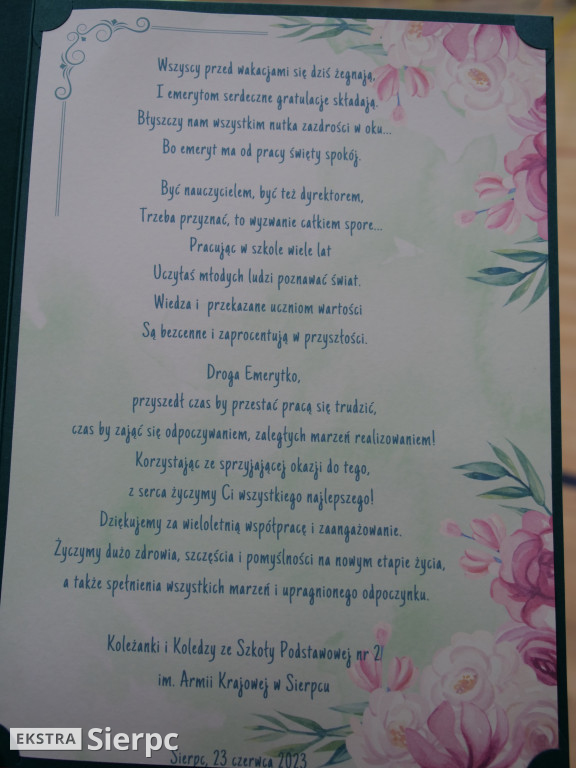 Wszyscy przed wakacjami się dziś żegnają,
I emerytom serdeczne gratulacje składają.
Błyszczy nam wszystkim nutka zazdrości w oku...
Bo emeryt ma od pracy święty spokój.
Być nauczycielem, być też dyrektorem,
Trzeba przyznać, to wyzwanie całkiem spore...
Pracując w szkole wiele lat
Uczyłaś młodych ludzi poznawać świat.
Wiedza i przekazane uczniom wartości
Są bezcenne i zaprocentują w przyszłości.
Droga Emerytko,
przyszedł czas by przestać pracą się trudzić,
czas by zająć się odpoczywaniem, zaległych marzeń realizowaniem!
Korzystając ze sprzyjającej okazji do tego,
z serca życzymy Ci wszystkiego najlepszego!
Dziękujemy za wieloletnią współpracę i zaangażowanie.
Życzymy dużo zdrowia, szczęścia i pomyślności na nowym etapie życia,
a także spełnienia wszystkich marzeń i upragnionego odpoczynku.
Koleżanki i Koledzy ze Szkoły Podstawowej nr 2
im. Armii Krajowej w Sierpcu
Sierpc, 23 czerwca 2023
EKSTRA Sierpc